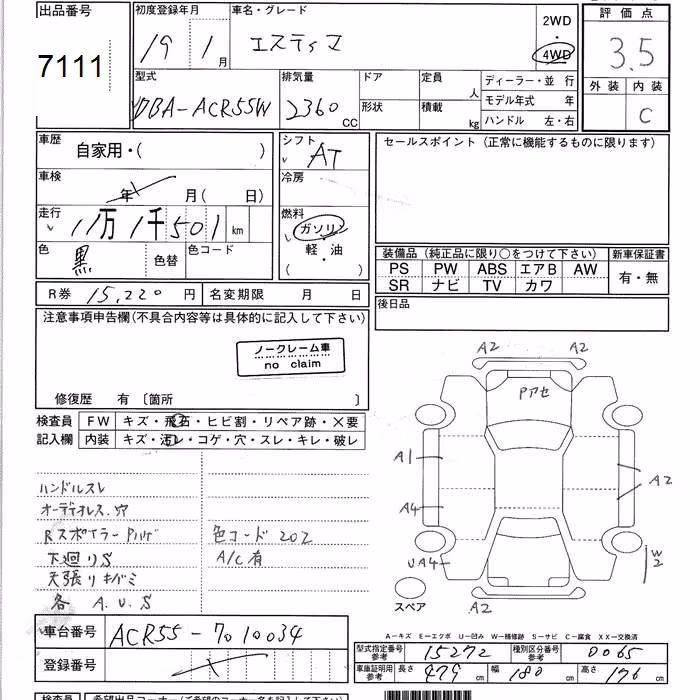 出品番号
7111
初度登録年月
19 1月
車名・グレード
エスティマ
2WD
・
4WD
評価点
3.5
外装 内装
C
型式
DBA-ACR55W
排気量
2360 CC
ドア
形状
定員
人
積載
kg
ディーラー・並 行
モデル年式 年
ハンドル 左・右
車歴
自家用・( )
車検
年 月( 日)
走行
11万1千501 km
色
黒
色替
色コード
シフト
AT
冷房
燃料
ガソリン
軽・油
( )
セールスポイント (正常に機能するものに限ります)
装備品 (純正品に限り○をつけて下さい)
新車保証書
PS PW ABS エアB AW
SR ナビ TV カワ
有・無
R券 15,220 円
名変期限 月 日
後日品
注意事項申告欄(不具合内容等は具体的に記入して下さい)
ノークレーム車
no claim
修復歴 有 〔箇所 〕
検査員
記入欄
FW キズ・飛石・ヒビ割・リペア跡・×要
内装 キズ・汚レ・コゲ・穴・スレ・キレ・破レ
ハンドルスレ
オーディオレス.穴
Rスポイラー Pハゲ
下廻りS
天張りキバミ
各 A.U.S
色コード 202
A/C有
A2 A2
Pアセ
A1
A4
A2
UA4
W2
A2
スペア
A－キズ E－エクボ U－凹み W－補修跡 S－サビ C－腐食 XX－交換済
車台番号 ACR55-7010034
登録番号
型式指定番号
参考
15272
種別区分番号
参考
0065
車庫証明用
参考
長さ 479 cm 幅 180 cm 高さ 176 cm
検査員
希望出品コーナー(ご希望のコーナー名を記入下さい)